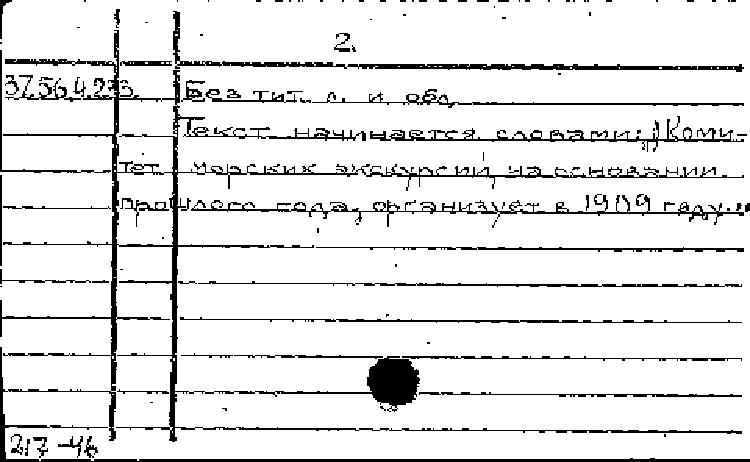 2.
37.56.4.233. Без тит. л. и обл.
Текст начинается словами: „Коми-
тет морских экскурсий, на основании
прошлого года, организует в 1909 году..."
217-46